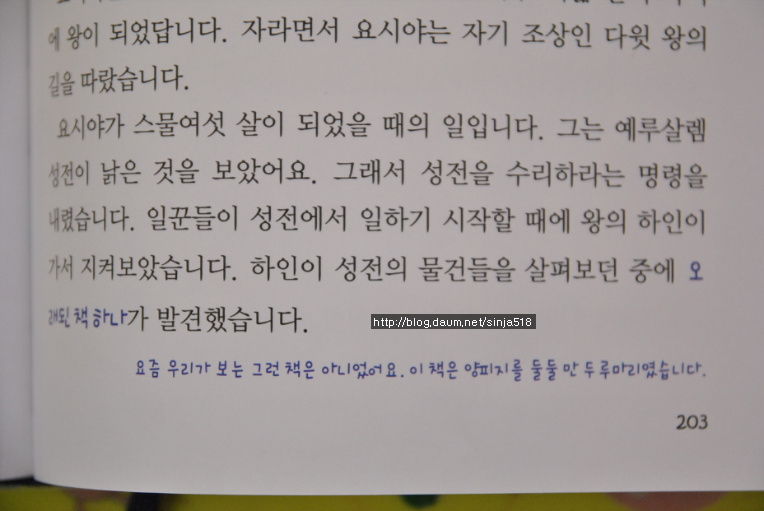 에 왕이 되었답니다. 자라면서 요시야는 자기 조상인 다윗 왕의
길을 따랐습니다.
요시야가 스물여섯 살이 되었을 때의 일입니다. 그는 예루살렘
성전이 낡은 것을 보았어요. 그래서 성전을 수리하라는 명령을
내렸습니다. 일꾼들이 성전에서 일하기 시작할 때에 왕의 하인이
가서 지켜보았습니다. 하인이 성전의 물건들을 살펴보던 중에 오
래된 책 하나가 발견했습니다.
http://blog.daum.net/sinja518
요즘 우리가 보는 그런 책은 아니었어요. 이 책은 양피지를 둘둘 만 두루마리였습니다.
203